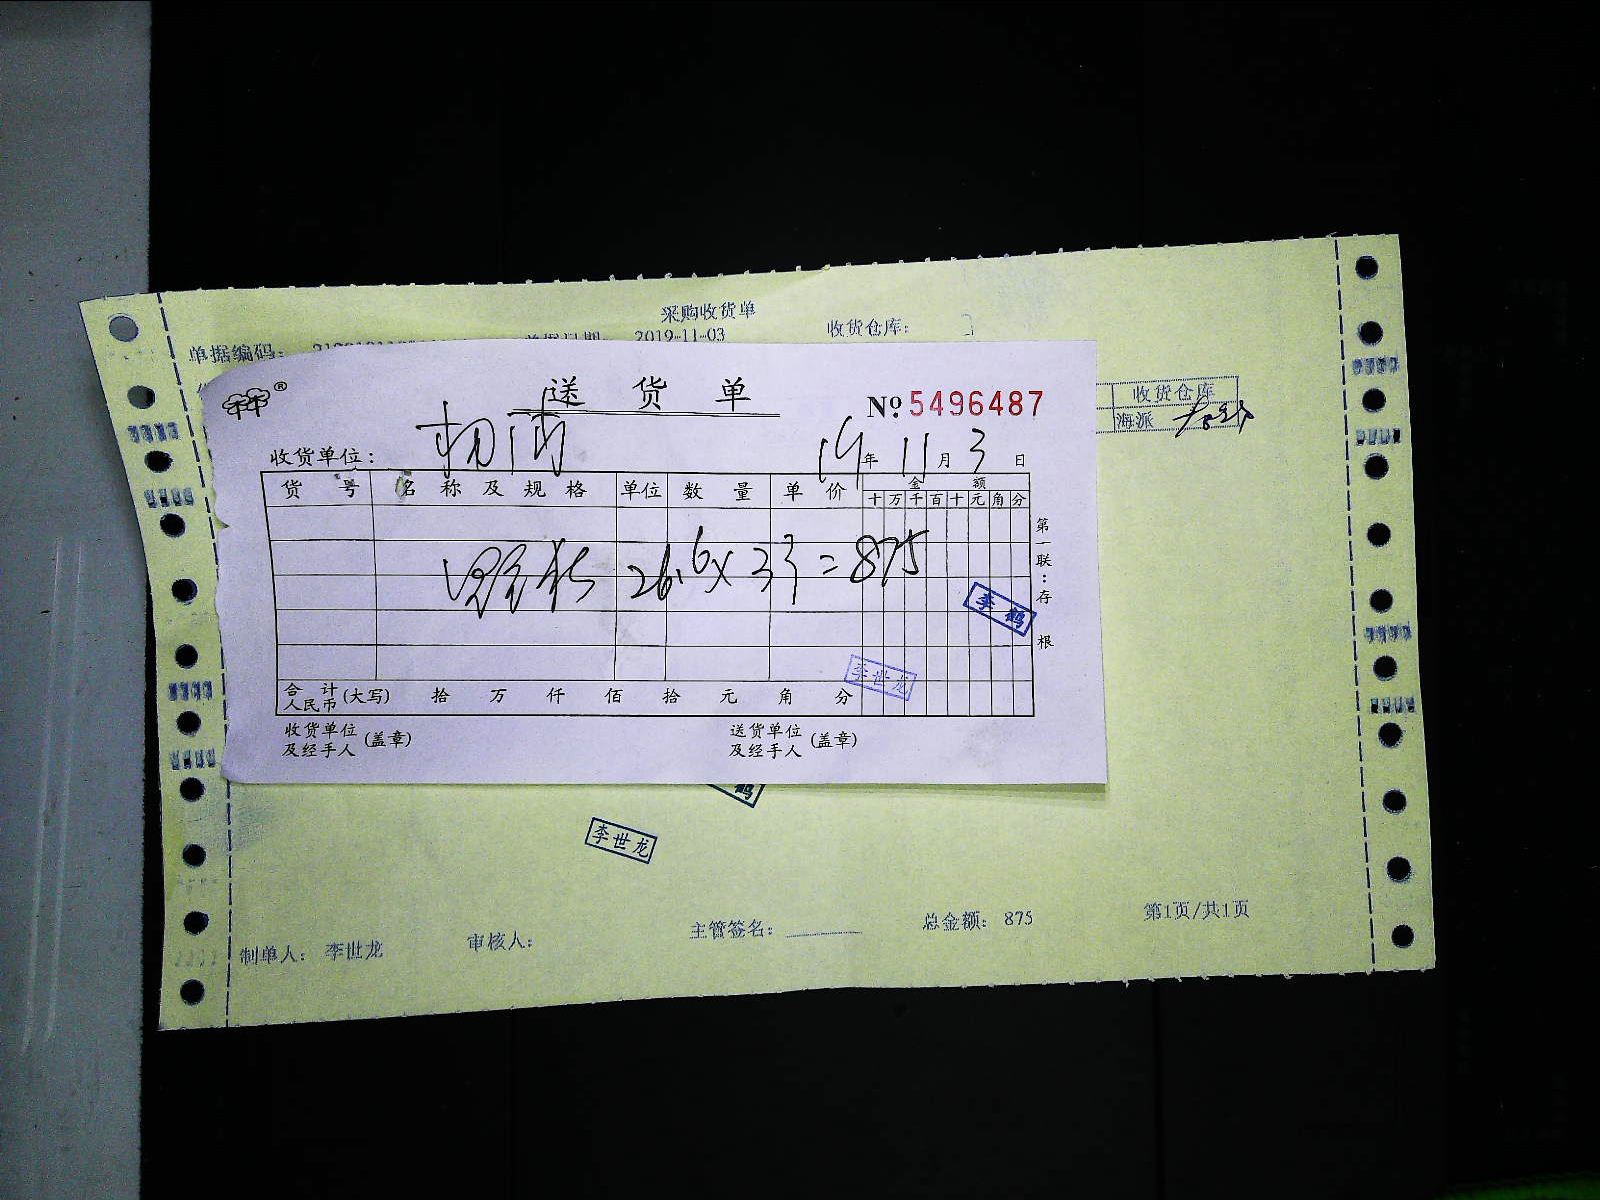 采购收货单
单据编码:
2019-11-03
收货仓库:
收货仓库
海派
送货单
® 
No 5496487
收货单位:
19年 11月 3日
货号 名称及规格 单位 数量 单价 金额
十 万 千 百 十 元 角 分
26.6×33=875
第一联:存根
李鹤
李世龙
合计人民币(大写) 拾 万 仟 佰 拾 元 角 分
收货单位及经手人(盖章) 送货单位及经手人(盖章)
鹤
李世龙
制单人: 李世龙 审核人: 主管签名: 总金额: 875 第1页/共1页